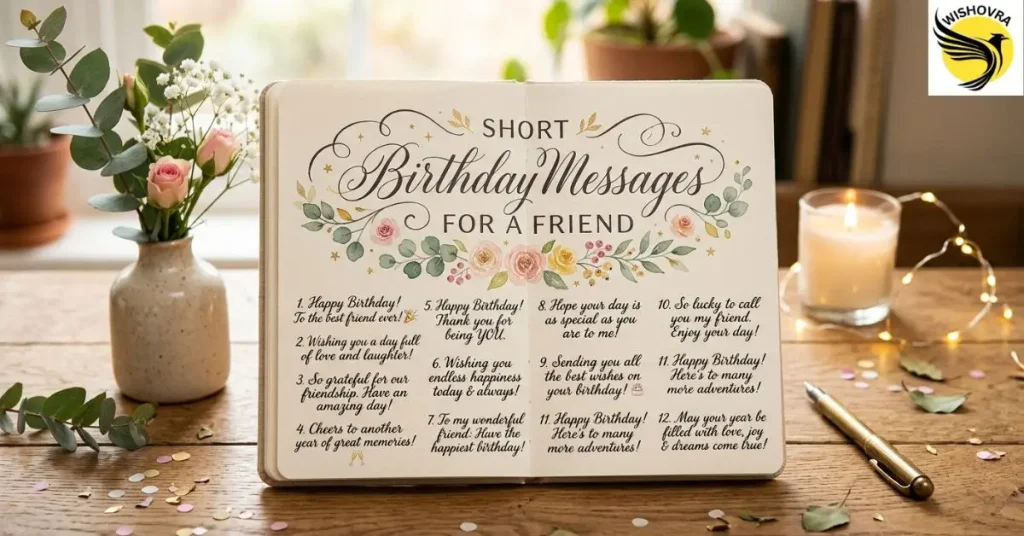 WISHOVRA
SHORT
Birthday Messages
FOR A FRIEND
1. Happy Birthday!
To the best friend ever! 🎉
2. Wishing you a day full
of love and laughter!
3. So grateful for our
friendship. Have an
amazing day!
4. Cheers to another
year of great memories!
🥂
5. Happy Birthday!
Thank you for
being YOU.
6. Wishing you
endless happiness
today & always!
7. To my wonderful
friend: Have the
happiest birthday!
8. Hope your day is
as special as you
are to me!
9. Sending you all
the best wishes on
your birthday! 🎂
11. Happy Birthday!
Here's to many
more adventures!
10. So lucky to call
you my friend.
Enjoy your day!
11. Happy Birthday!
Here's to many
more adventures!
12. May your year be
filled with love, joy
& dreams come true!